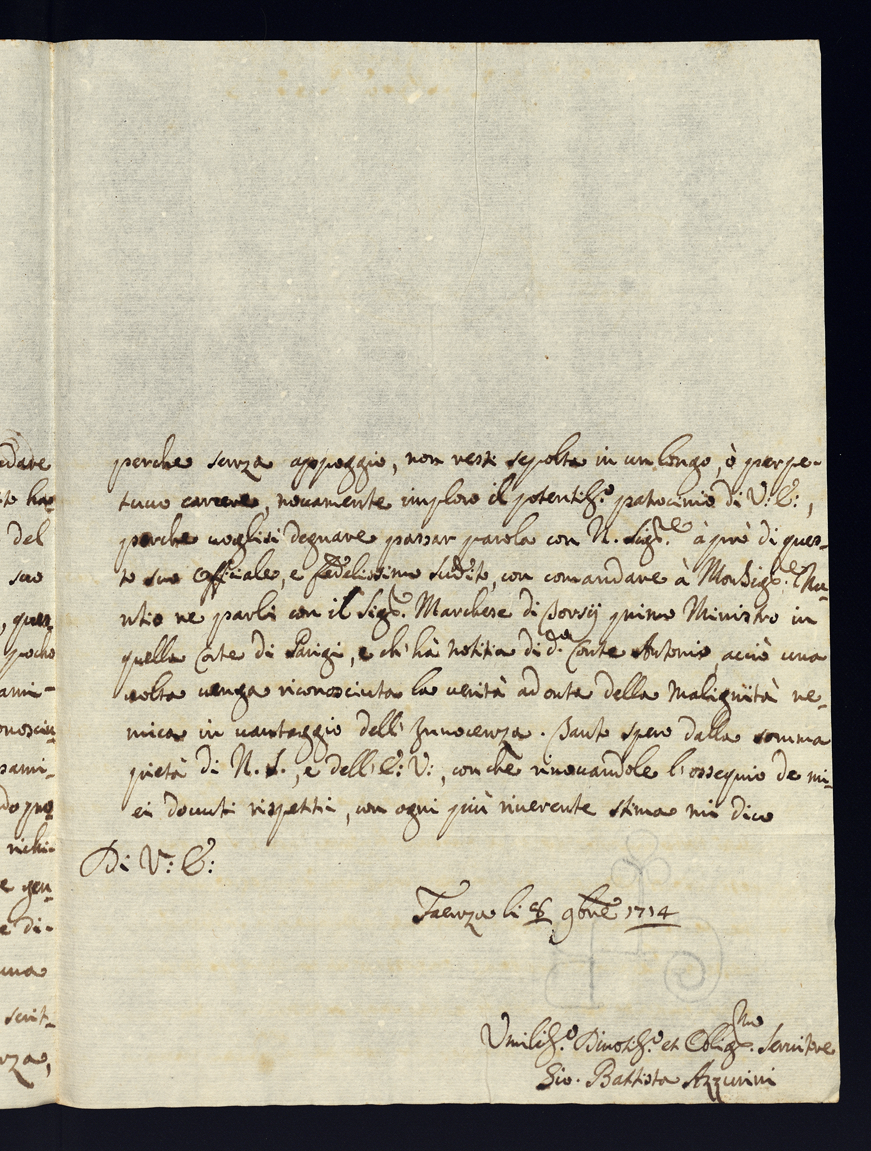 edare
to ha
del
suo
, ques
pocho
ami-
onosciu
sami-
do pro
richi-
e gen
e di-
una
scrit-
nza,
perche senza appoggio, non resti sepolto in un longo, ò perpe-
tuuo carcere, nouamente imploro il potentiss.º patrocinio di V.ª E:,
perche uoglisi degnare passar parola con N. Sig.re à prò di ques-
to suo Officiale, e fedelissimo sudito, con comandare à Monsig.re Nu-
ntio ne parli con il Sig.r Marchese di Torsij primo Ministro in
quella Corte di Parigi, e ch' hà notitia di d.º Conte Antonio, acciò una
uolta uenga riconosciuta la uerità ad onta della malignità ne-
mica in uantaggio dell' Innocenza. Tanto spero dalla somma
pietà di N. S., e dell' E: V:, con che rinouandole l' ossequio de mi-
ei douuti rispetti, con ogni più riuerente stima mi dico
Di V.ª: E:
Faenza li 8 9bre 1714
Vmiliss.º Diuotiss.º et Oblig.mo Seruitore
Gio. Battista Azzurini